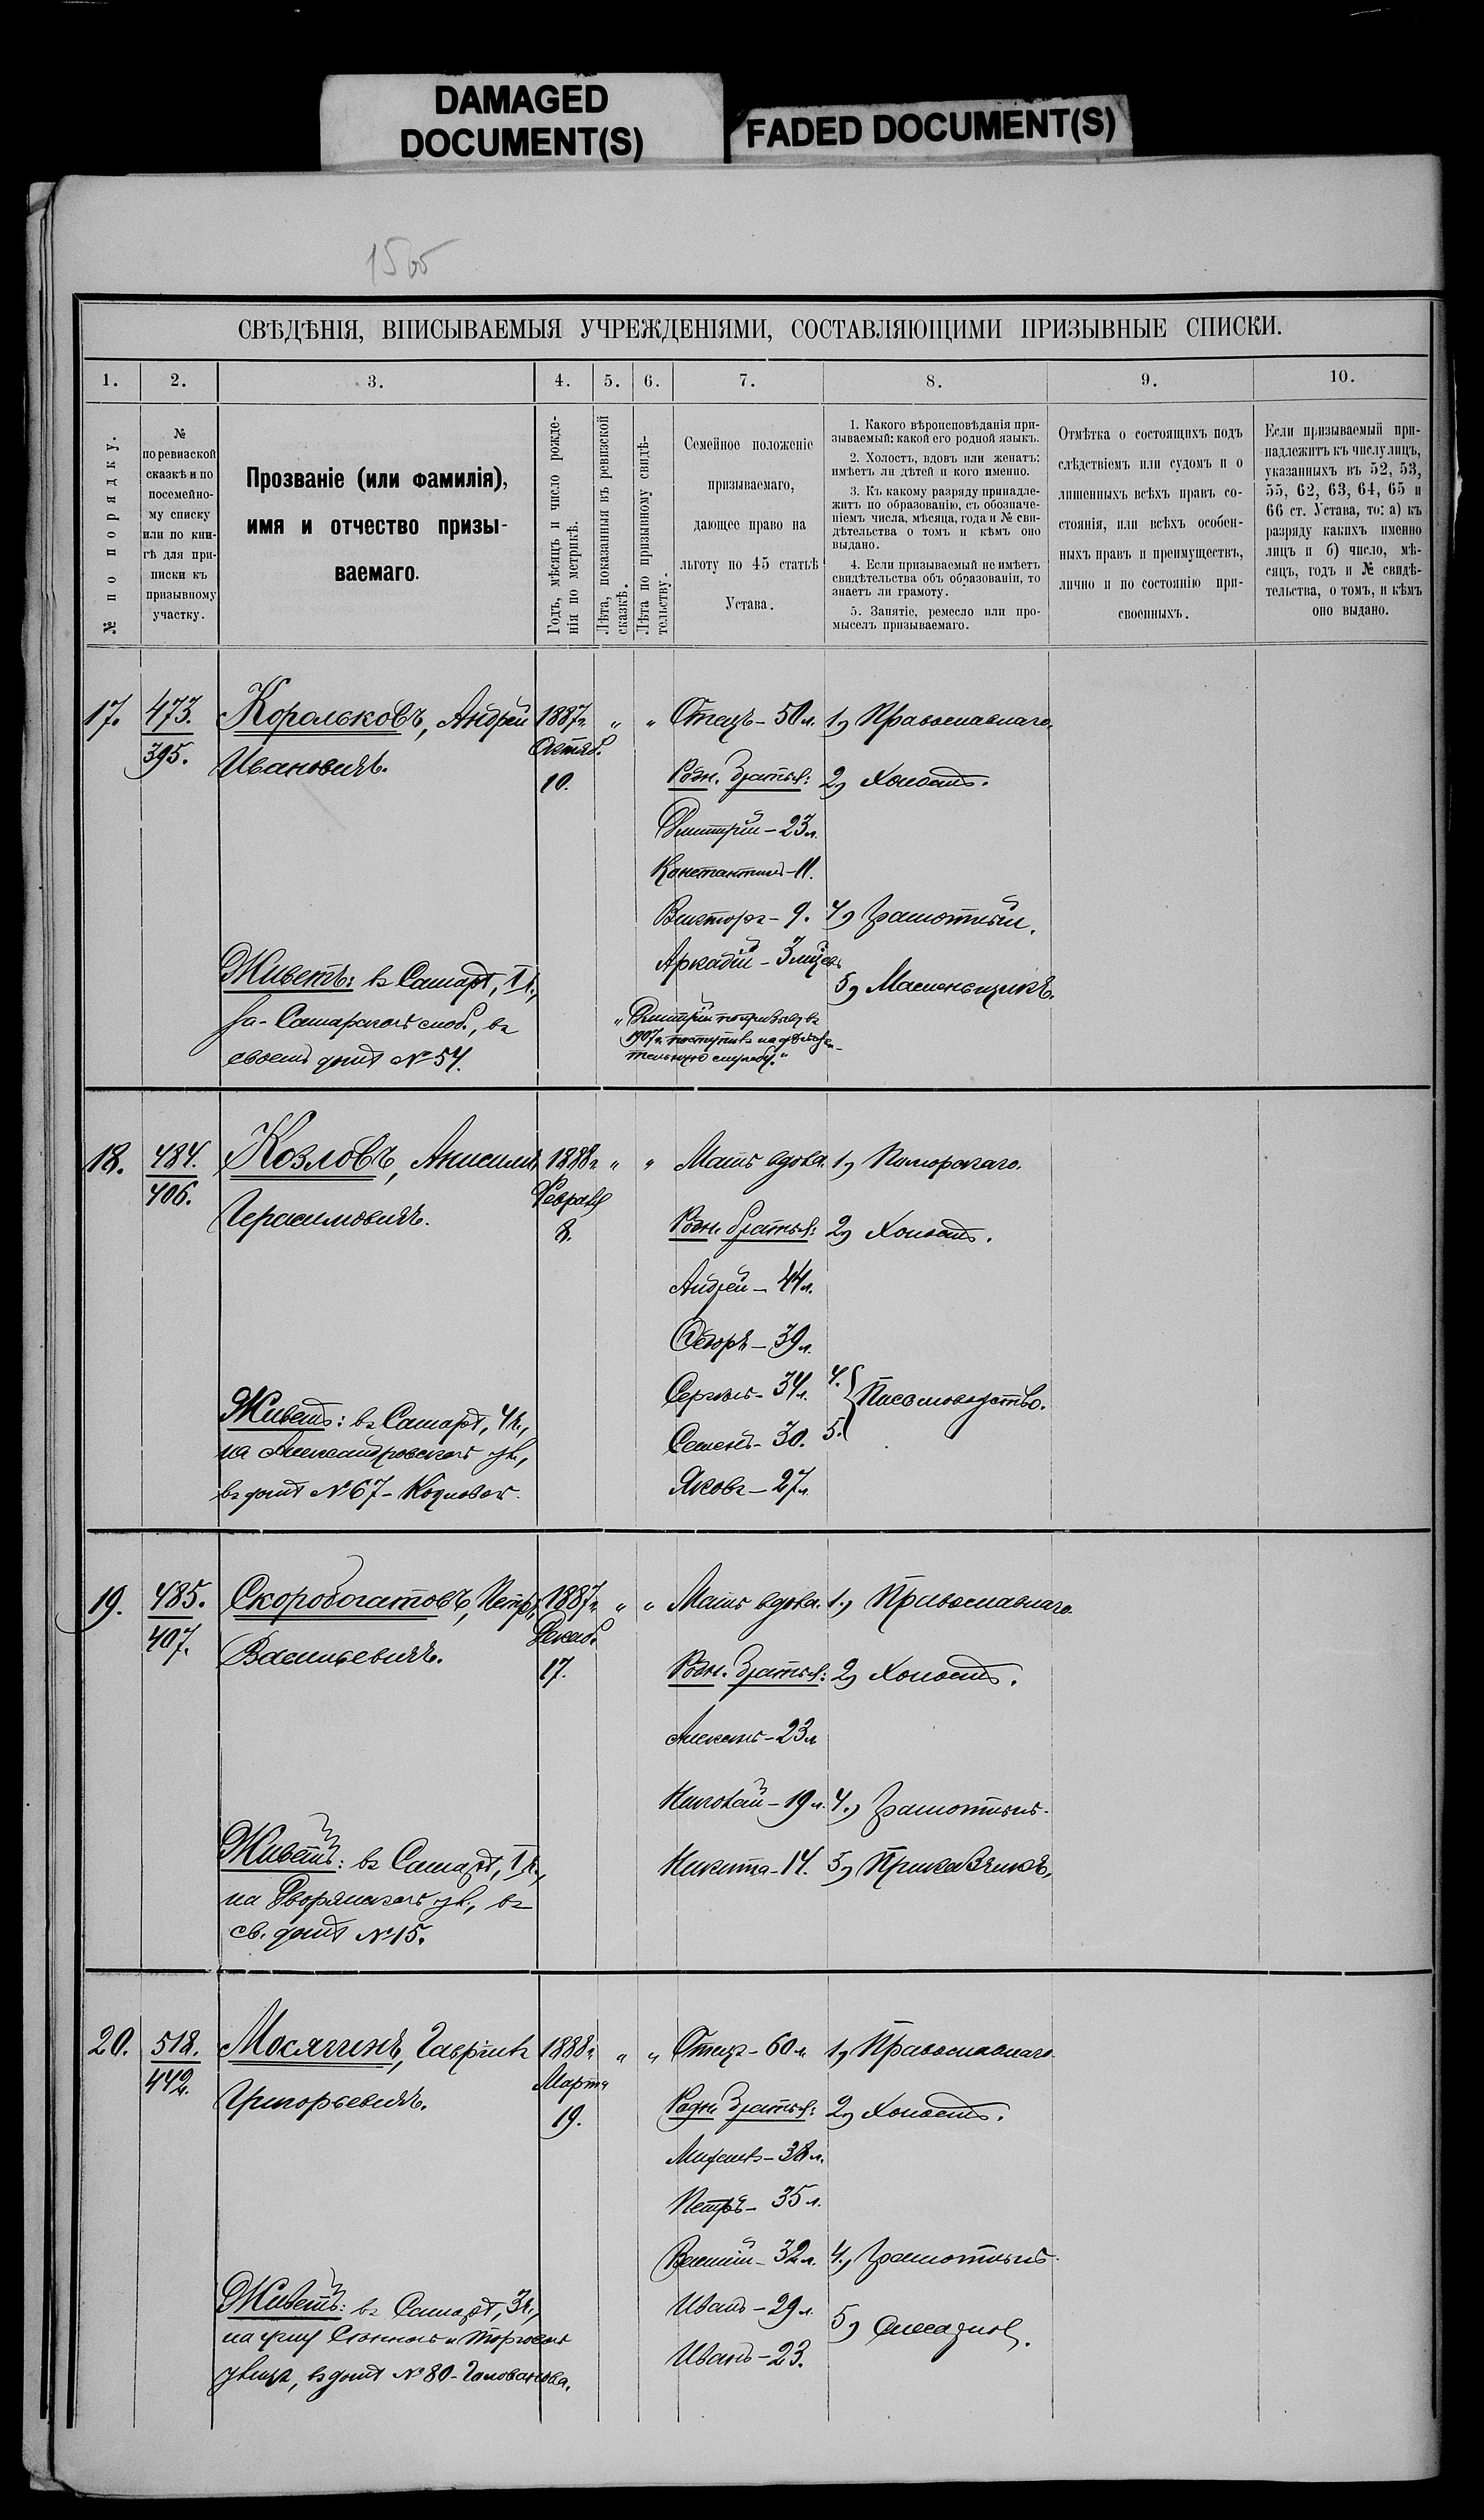 DAMAGED
DOCUMENT(S)
FADED DOCUMENT(S)
СВѢДѢНІЯ, ВПИСЫВАЕМЫЯ УЧРЕЖДЕНІЯМИ, СОСТАВЛЯЮЩИМИ ПРИЗЫВНЫЕ СПИСКИ.
1. 2. 3. 4. 5. 6. 7. 8. 9. 10.
№ по порядку.
№
по ревизской
сказкѣ и по
посемейно-
му списку
или по кни-
гѣ для при-
писки къ
призывному
участку.
Прозваніе (или фамилія),
имя и отчество призы-
ваемаго.
Годъ, мѣсяцъ и число рожде-
нія по метрикѣ.
Лѣта, показанныя въ ревизской
сказкѣ.
Лѣта по призывному свидѣ-
тельству.
Семейное положеніе
призываемаго,
дающее право на
льготу по 45 статьѣ
Устава.
1. Какого вѣроисповѣданія при-
зываемый: какой его родной языкъ.
2. Холостъ, вдовъ или женатъ:
имѣетъ ли дѣтей и кого именно.
3. Къ какому разряду принадле-
житъ по образованію, съ обозначе-
ніемъ числа, мѣсяца, года и № сви-
дѣтельства о томъ и кѣмъ оно
выдано.
4. Если призываемый не имѣетъ
свидѣтельства объ образованіи, то
знаетъ ли грамоту.
5. Занятіе, ремесло или про-
мыселъ призываемаго.
Отмѣтка о состоящихъ подъ
слѣдствіемъ или судомъ и о
лишенныхъ всѣхъ правъ со-
стоянія, или всѣхъ особен-
ныхъ правъ и преимуществъ,
лично и по состоянію при-
своенныхъ.
Если призываемый при-
надлежитъ къ числу лицъ,
указанныхъ въ 52, 53,
55, 62, 63, 64, 65 и
66 ст. Устава, то: а) къ
разряду какихъ именно
лицъ и б) число, мѣ-
сяцъ, годъ и № свидѣ-
тельства, о томъ, и кѣмъ
оно выдано.
17. 473. Корольковъ, Андрей 1887г. " " Отецъ - 50 л. 1) Православнаго.
395. Ивановичъ. Октяб.
10. Родн. братья: 2) Холостъ.
Дмитрій - 23 л.
Константинъ - 11.
Викторъ - 9. 4) Грамотный.
Аркадій - 3 мѣсяц.
Живетъ: въ Самарѣ, 1 ч., 5) Масленьщикъ.
За-Самарской слоб., въ
своемъ домѣ № 54.
"Дмитрій по призыву въ
1907г. поступилъ на дѣйстви-
тельную службу."
18. 484. Козловъ, Анисимъ 1888г. " " Мать вдова. 1) Поморскаго.
406. Герасимовичъ. Феврал
8. Родн. братья: 2) Холостъ.
Андрей - 44 л.
Ѳедоръ - 39 л.
Сергѣй - 34 л. 4.
Живетъ: въ Самарѣ, 4 ч., Семенъ - 30. 5. Письмоводство.
на Александровской ул., Яковъ - 27 л.
въ домѣ № 67 - Козловой.
19. 485. Скоробогатовъ, Петръ 1887г. " " Мать вдова. 1) Православнаго.
407. Васильевичъ. Декаб.
17. Родн. братья: 2) Холостъ.
Алексѣй - 23 л.
Николай - 19 л. 4) Грамотный.
Живетъ: въ Самарѣ, 1 ч., Никита - 14. 5) Приказчикъ.
на Дворянской ул., въ
св. домѣ № 15.
20. 518. Мосягинъ, Гавріилъ 1888г. " " Отецъ - 60 л. 1) Православнаго.
442. Григорьевичъ. Марта
19. Родн. братья: 2) Холостъ.
Михаилъ - 38 л.
Петръ - 35 л.
Василій - 32 л. 4) Грамотный.
Живетъ: въ Самарѣ, 3 ч., Иванъ - 29 л. 5)
на углу Сѣнной и Торговой Иванъ - 23.
улицъ, въ домѣ № 80 - Голованова.